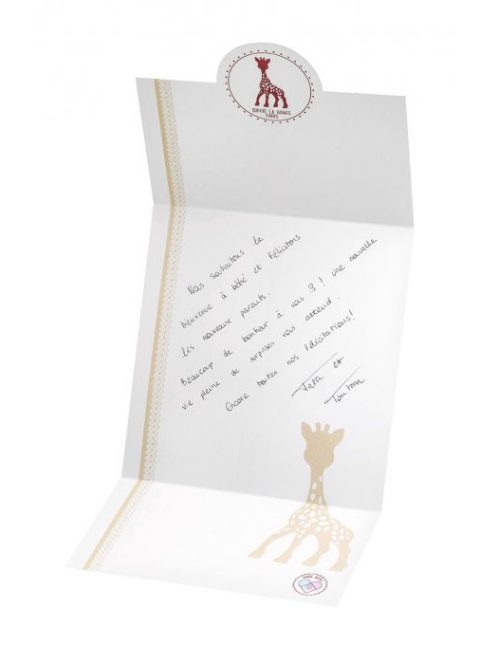 SOPHIE LA GIRAFE
PARIS
Nous souhaitons la
bienvenue à bébé et félicitons
les nouveaux parents.
Beaucoup de bonheur à vous 3 ! une nouvelle
vie pleine de surprises vous attend.
Encore toutes nos félicitations!
Tata et
Tonton